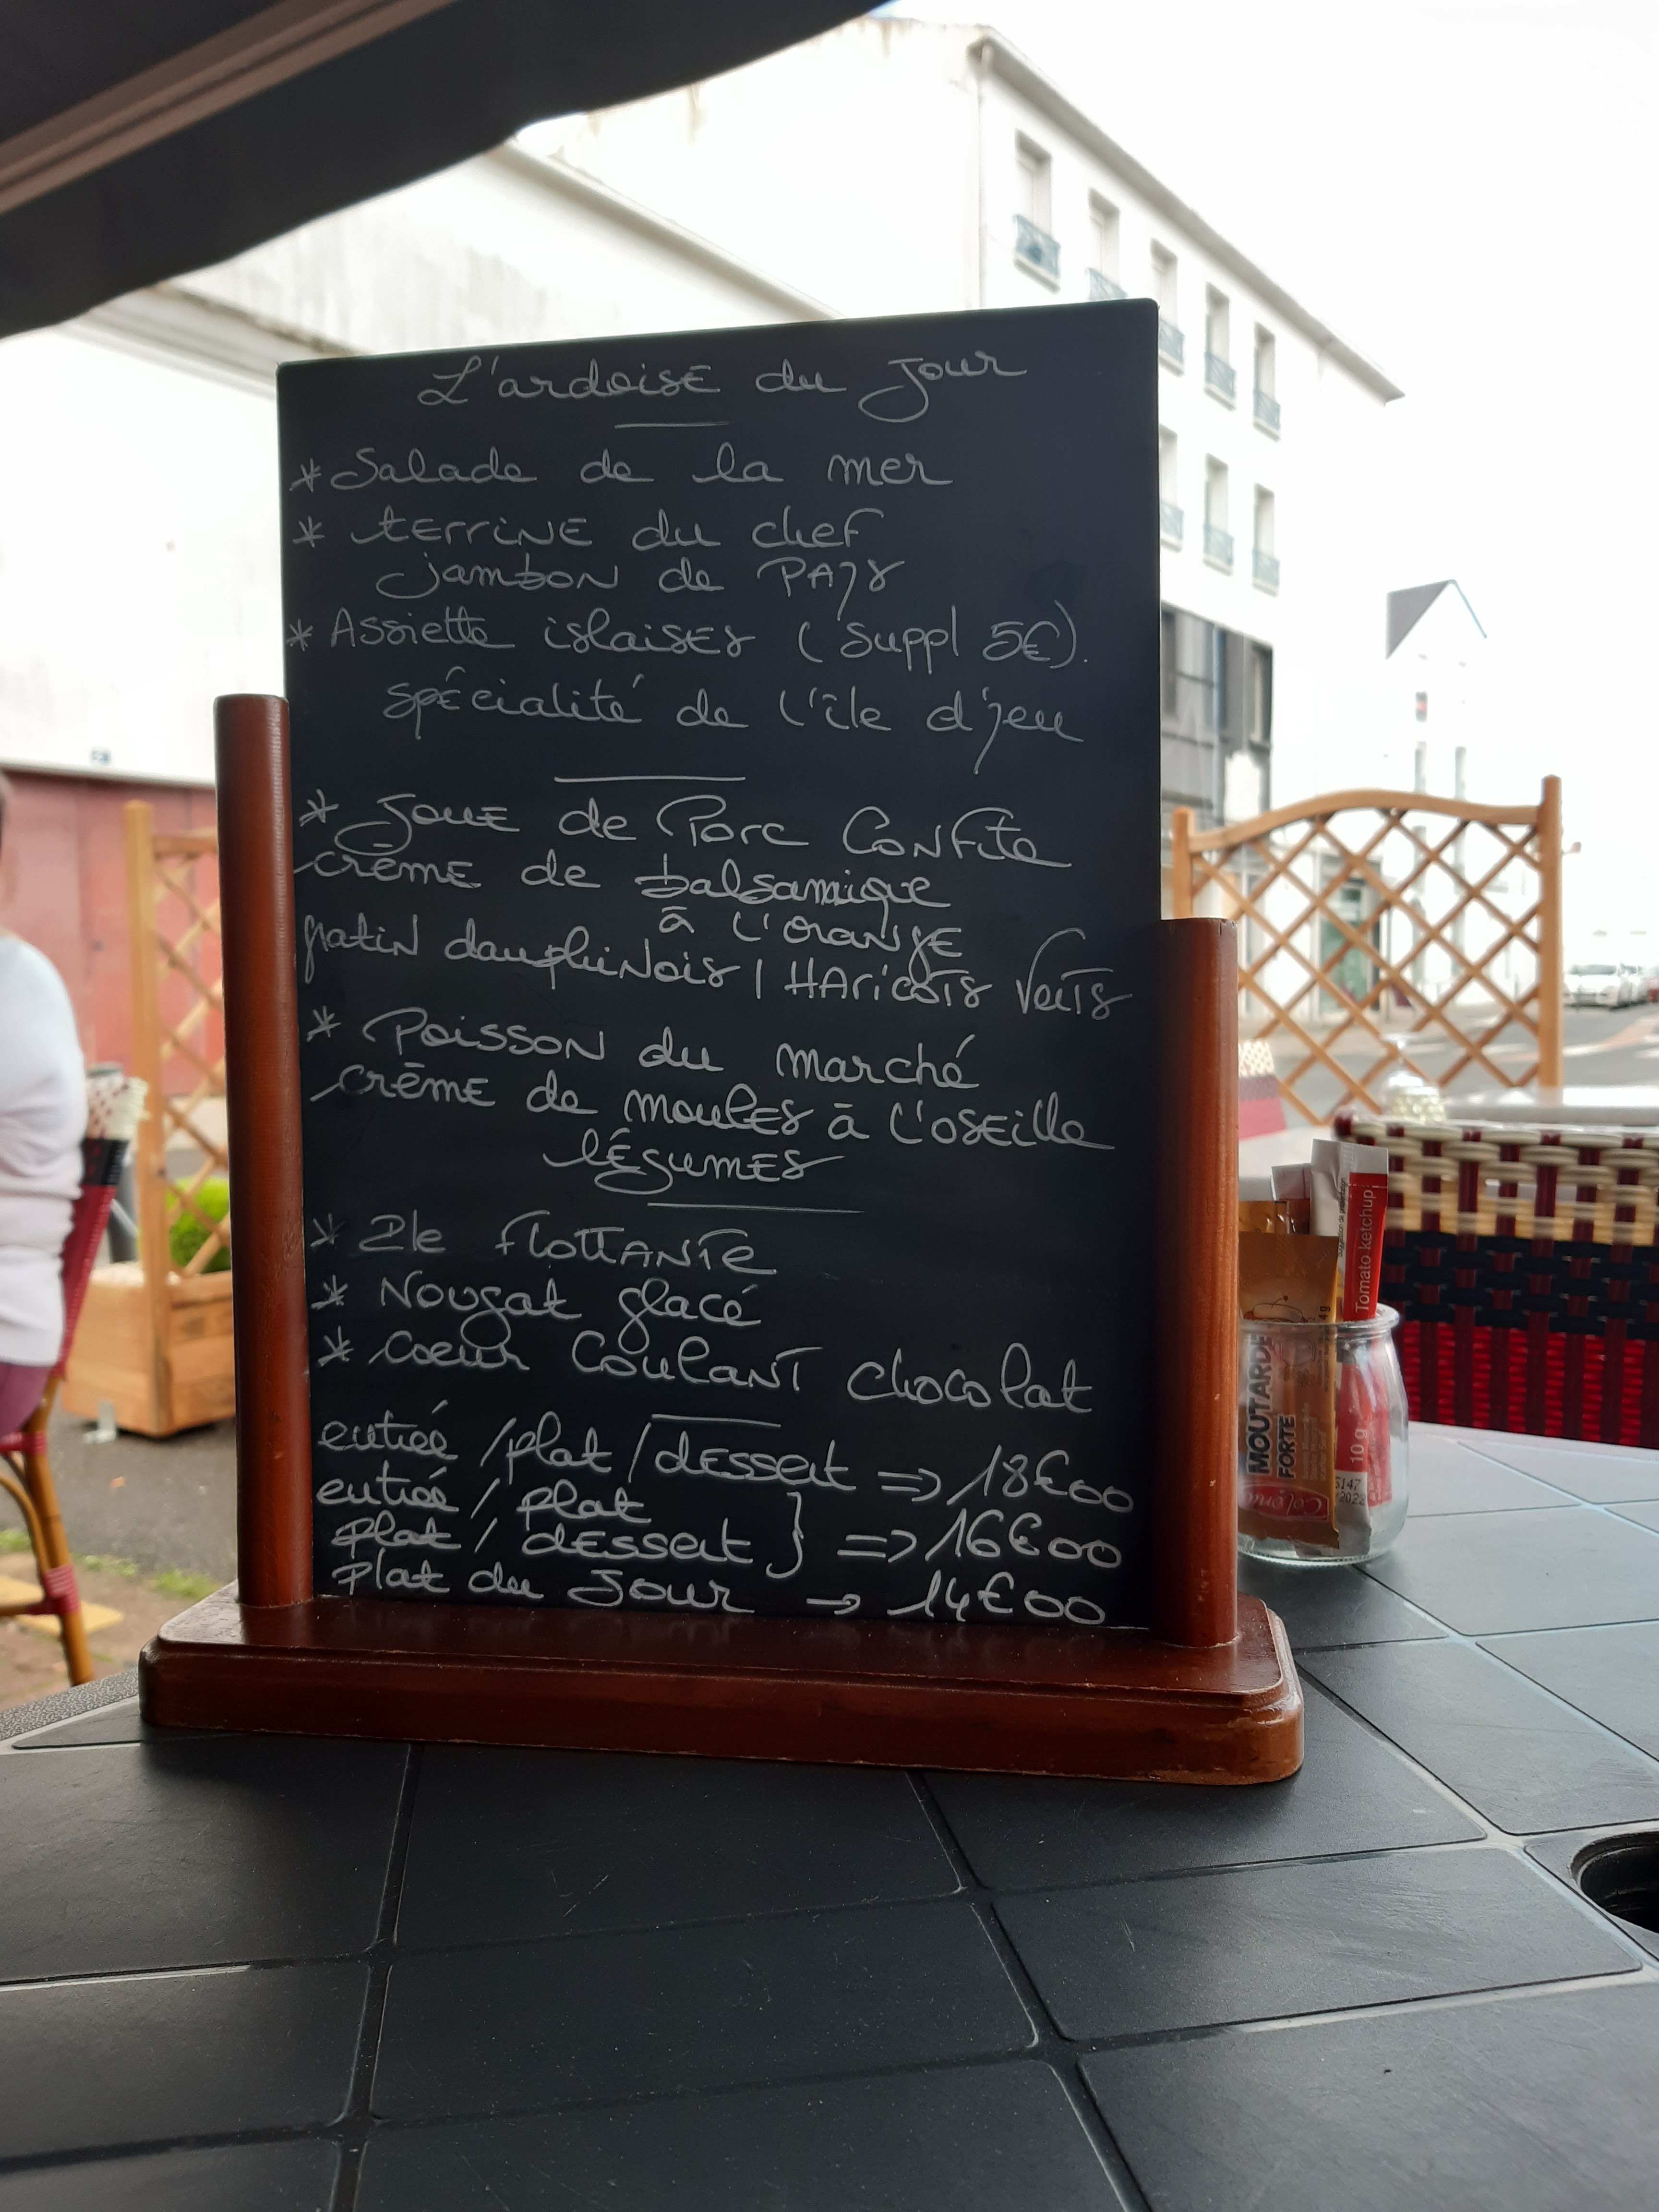 L'ardoise du Jour
* Salade de la mer
* terrine du chef
jambon de PAys
* Assiette islaises (Suppl 5€).
spécialité de l'île d'yeu
* Joue de Porc Confite
crème de balsamique
à l'orange
gratin dauphinois / HAricots Verts
* Poisson du marché
crème de moules à l'oseille
légumes
* Ile flottante
* Nougat glacé
* coeur coulant chocolat
entrée / plat / dessert => 18€00
entrée / plat
plat / dessert } => 16€00
Plat du Jour -> 14€00
Tomato ketchup
10 g
MOUTARDE
FORTE